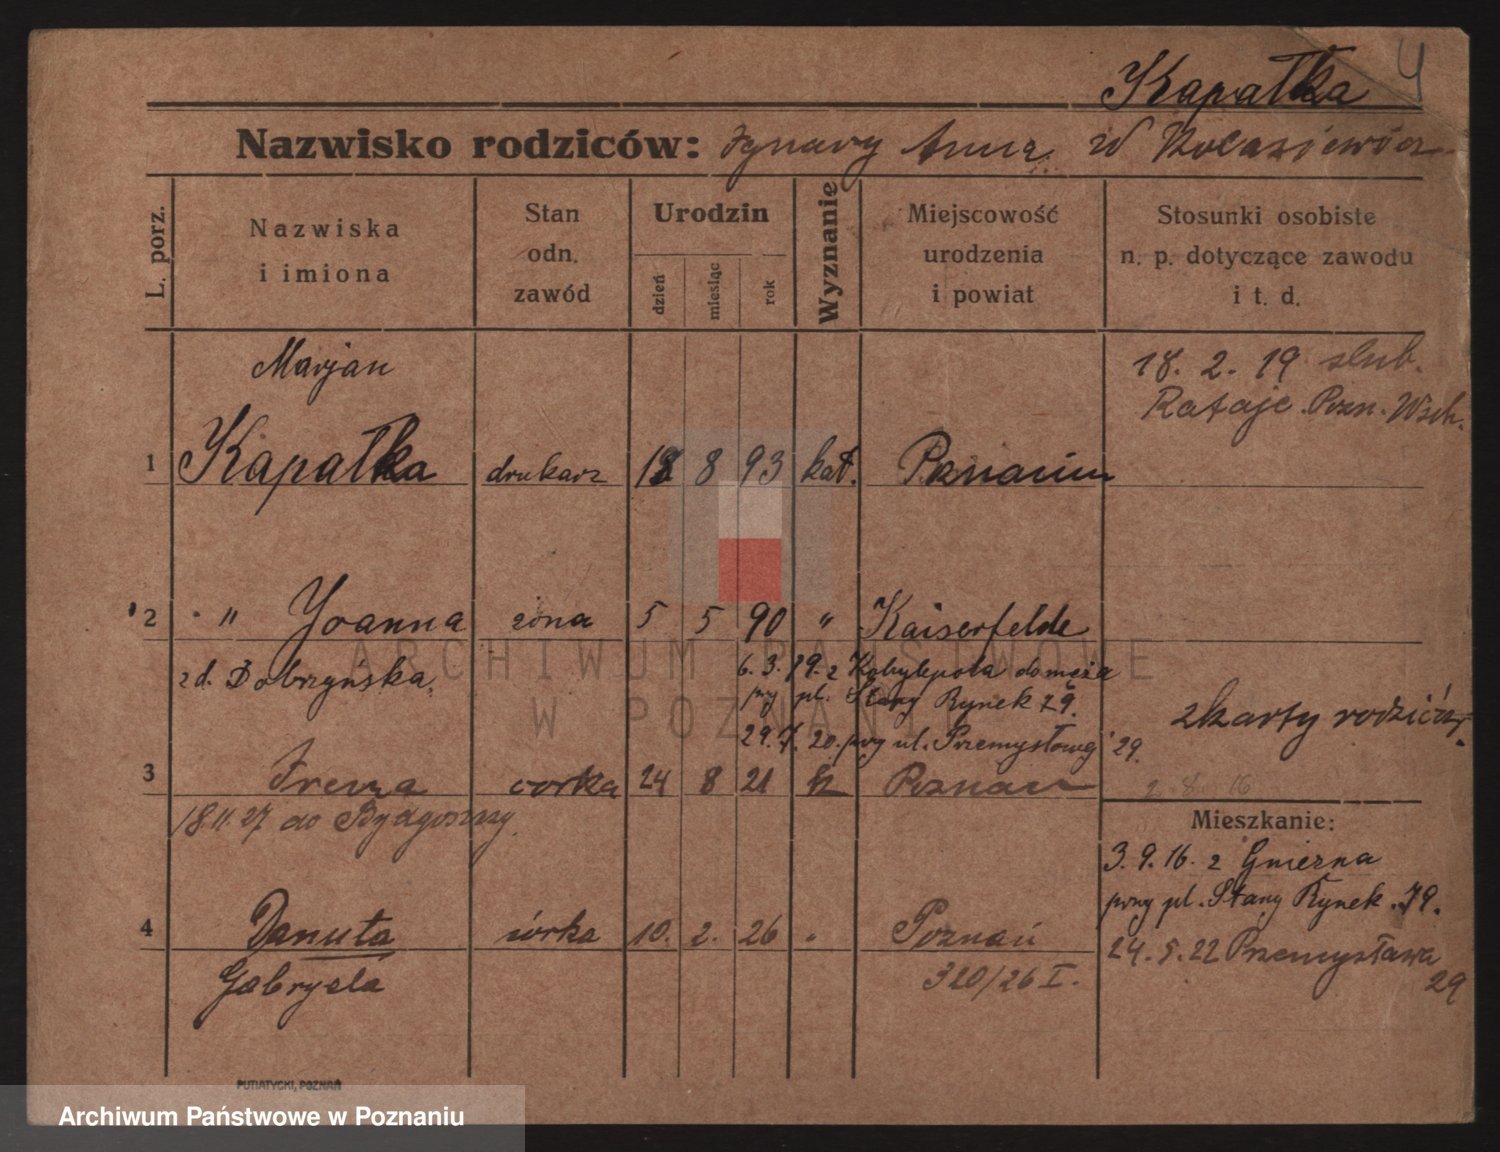 Kapałka 4
Nazwisko rodziców: Ignacy Anna
L. porz.
Nazwiska
i imiona
Stan
odn.
zawód
Urodzin
dzień
miesiąc
rok
Wyznanie
Miejscowość
urodzenia
i powiat
Stosunki osobiste
n. p. dotyczące zawodu
i t. d.
Marjan
18. 2. 19 slub.
Rataje. Pozn. Wsch.
1 Kapałka drukarz 18 8 93 kat. Poznaniu
2 " Yoanna żona 5 5 90 " Kaiserfelde
zd. Dobrzyńska,
6. 3. 19. z Kobylepola do męża
przy pl. Stary Rynek 79.
29. 7. 20. przy ul. Przemysłowej 29.
z karty rodziców.
3 Irena corka 24 8 21 k Poznań
2. 8. 16
18. 11. 27 do Bydgoszczy.
Mieszkanie:
3. 9. 16. z Gniezna
przy pl. Stary Rynek. 79.
4 Danuta córka 10. 2. 26 " Poznań
24. 5. 22 Przemysława
29
Gabryela
320/26 I.
PUTIATYCKI, POZNAŃ
ARCHIWUM PAŃSTWOWE
W POZNANIU
Archiwum Państwowe w Poznaniu